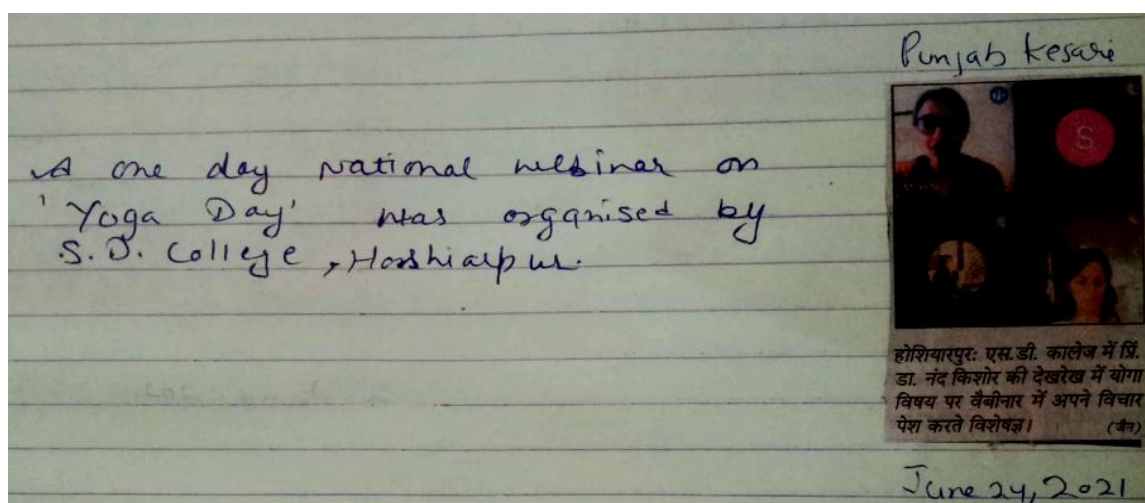 Punjab Kesari
A one day national webinar on
'Yoga Day' was organised by
S.D. College, Hoshiarpur.
S
होशियारपुर: एस.डी. कालेज में प्रिं.
डा. नंद किशोर की देखरेख में योगा
विषय पर वैबीनार में अपने विचार
पेश करते विशेषज्ञ। (जैन)
June 24, 2021